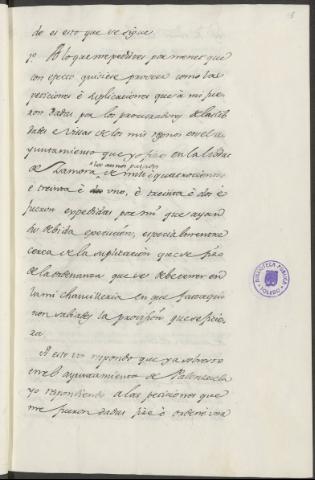 do es esto que se sigue
A lo que me pedistes por merced que
con efecto quisiese proveer como las
peticiones è suplicaciones que à mi fue-
ron dadas por los procuradores de las cib-
dades e villas de los mis regnos en el a-
yuntamiento que yo fice en la cibdad
de Zamora los años pasados de mil e quatrocientos
e treinta è uno, è treinta è dos è
fueron expedidas por mi que ayan
debida execucion, especialmente
cerca de la suplicacion que se fizo
de la ordenanza que se debe tener en
la mi chancilleria en que fasta aqui
non sabedes la provision que se ficie-
ra
A esto vos respondo que ya sobre esto
en el ayuntamiento de Palenzuela
yo respondiendo à las peticiones que
me fueron dadas fice è ordené una
BIBLIOTECA PUBLICA
TOLEDO